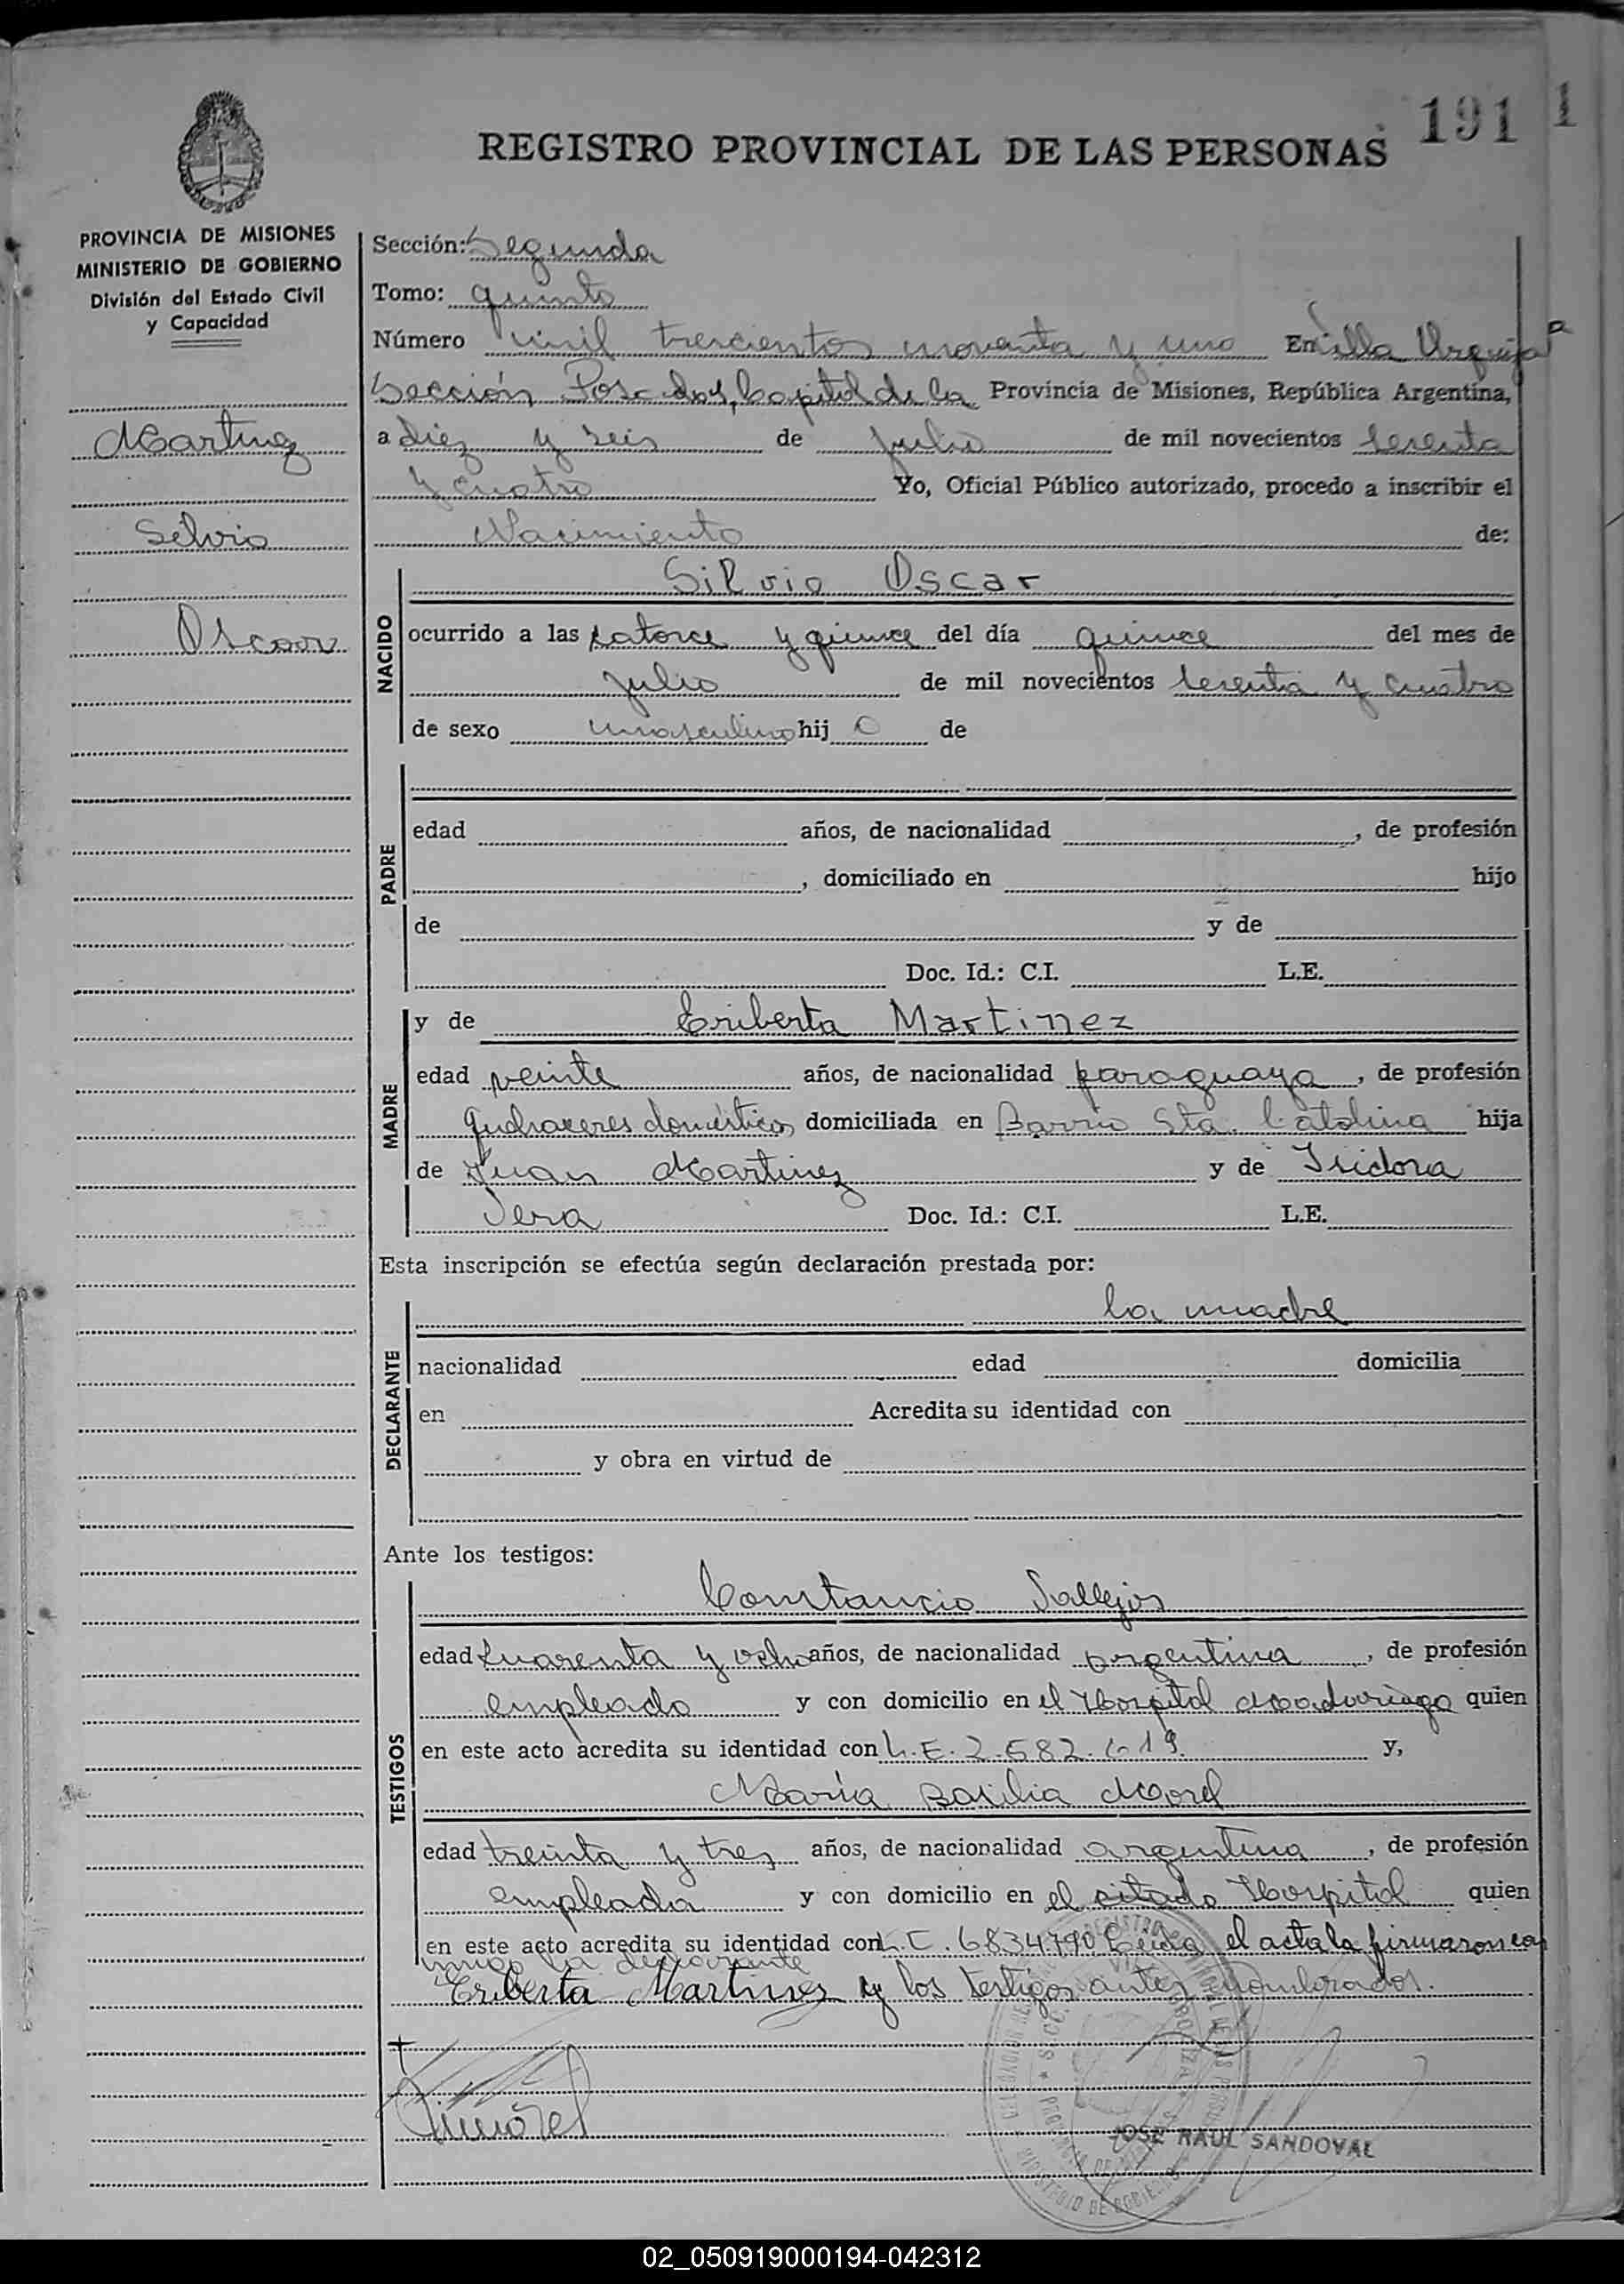 191 1
REGISTRO PROVINCIAL DE LAS PERSONAS
PROVINCIA DE MISIONES
MINISTERIO DE GOBIERNO
División del Estado Civil
y Capacidad
Martinez
Silvio
Oscar
Sección: Segunda
Tomo: quinto
Número mil trescientos noventa y uno En Villa Urquiza
Sección Posadas, Capital de la Provincia de Misiones, República Argentina,
a diez y seis de julio de mil novecientos sesenta
y cuatro Yo, Oficial Público autorizado, procedo a inscribir el
Nacimiento de:
NACIDO
Silvio Oscar
ocurrido a las catorce y quince del día quince del mes de
julio de mil novecientos sesenta y cuatro
de sexo masculino hij o de
PADRE
edad años, de nacionalidad , de profesión
, domiciliado en hijo
de y de
Doc. Id.: C.I. L.E.
MADRE
y de Eriberta Martinez
edad veinte años, de nacionalidad paraguaya , de profesión
quehaceres domésticos domiciliada en Barrio Sta. Catalina hija
de Juan Martinez y de Isidora
Vera Doc. Id.: C.I. L.E.
Esta inscripción se efectúa según declaración prestada por:
DECLARANTE
la madre
nacionalidad edad domicilia
en Acredita su identidad con
y obra en virtud de
Ante los testigos:
TESTIGOS
Constancio Vallejos
edad cuarenta y ocho años, de nacionalidad argentina , de profesión
empleado y con domicilio en el Hospital Madariaga quien
en este acto acredita su identidad con L.E. y,
María Basilia Morel
edad treinta y tres años, de nacionalidad argentina , de profesión
empleada y con domicilio en el citado Hospital quien
en este acto acredita su identidad con L.C. 6834790 Leída el acta la firmaron con
migo la declarante
Eriberta Martinez y los testigos antes nombrados.
JOSE RAUL SANDOVAL
02_050919000194-042312